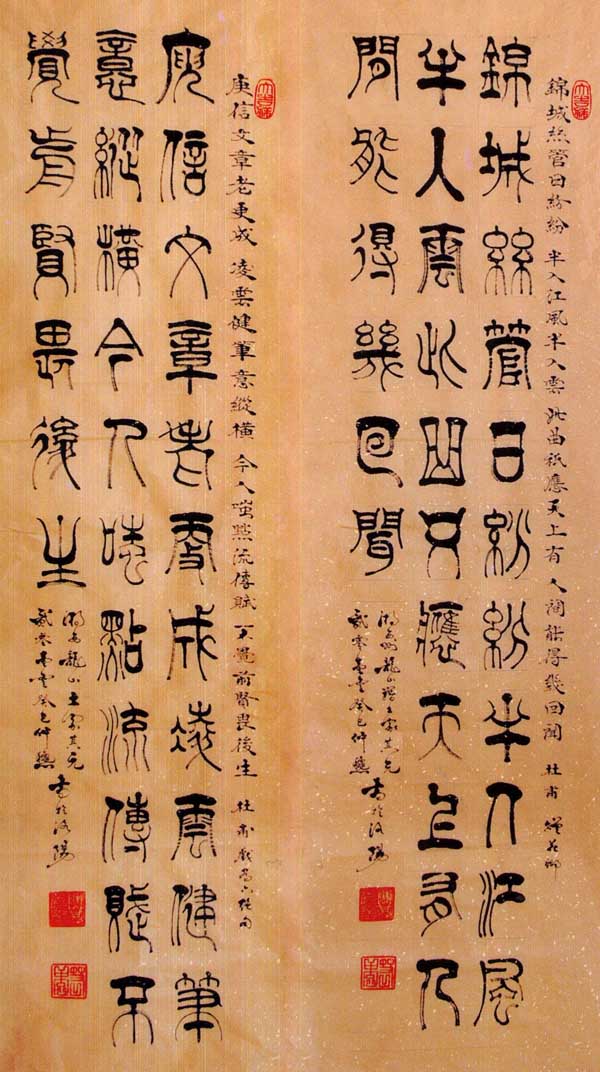 錦城絲管日紛紛 半入江風半入雲 此曲祇應天上有 人間能得幾回聞 杜甫 贈花卿
錦城絲管日紛紛半入江風
半入雲此曲只應天上有人
間能得幾回聞
龍山
貳零 癸巳仲 書於洛陽
庾信文章老更成 凌雲健筆意縱橫 今人嗤點流傳賦 不覺前賢畏後生 杜甫 戲為六絕句
庾信文章老更成凌雲健筆
意縱橫今人嗤點流傳賦不
覺前賢畏後生
龍山土家其元
貳零 癸巳仲 書於洛陽